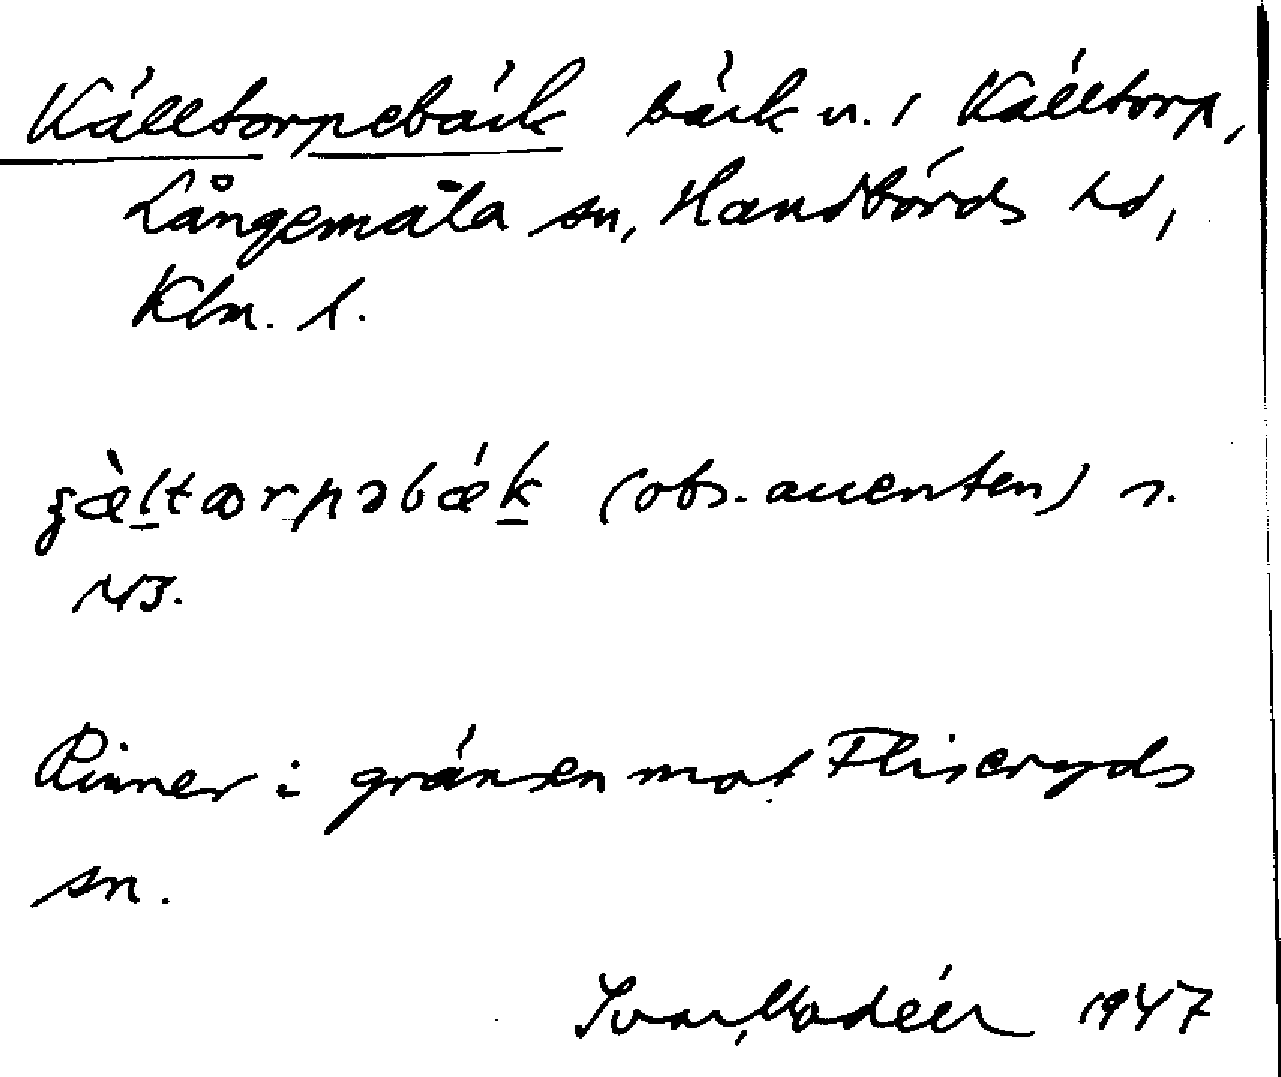 Källtorpebäck bäck v. i Källtorp,
Långemåla sn, Handbörds hd,
Klm. l.
ʒæ̀ltɷrpəbǽk (obs. accenten) s.
NB.
Rinner i gränsen mot Fliseryds
sn.
Ivar Modéer 1947